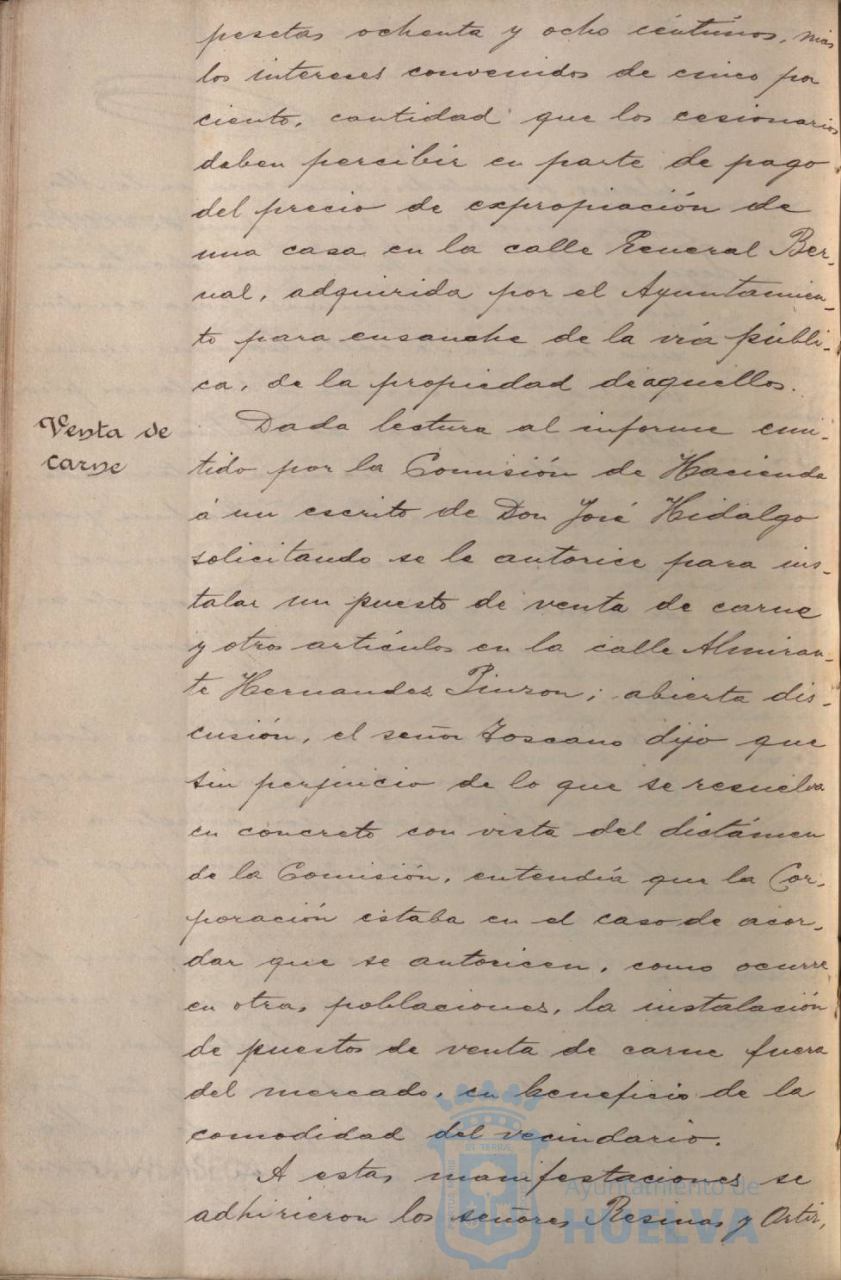 pesetas ochenta y ocho céntimos, mas
los intereses convenidos de cinco por
ciento, cantidad que los cesionarios
deben percibir en parte de pago
del precio de expropiación de
una casa en la calle General Ber-
nal, adquirida por el Ayuntamien-
to para ensanche de la vía públi-
ca, de la propiedad de aquellos.
Venta de
carne
Dada lectura al informe emi-
tido por la Comisión de Hacienda
á un escrito de Don José Hidalgo
solicitando se le autorice para ins-
talar un puesto de venta de carne
y otros artículos en la calle Almiran-
te Hernandez Pinzon; abierta dis-
cusión, el señor Toscano dijo que
sin perjuicio de lo que se resuelva
en concreto con vista del dictámen
de la Comisión, entendía que la Cor-
poración estaba en el caso de acor-
dar que se autoricen, como ocurre
en otras poblaciones, la instalación
de puestos de venta de carne fuera
del mercado, en beneficio de la
comodidad del vecindario.
A estas manifestaciones se
adhirieron los señores Resinas y
Ayuntamiento de
HUELVA